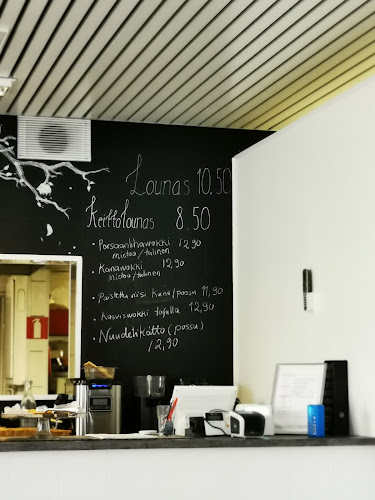 Lounas 10,50
Keittolounas 8.50
• Porsaanlihawokki 12,90
mietoa/tulinen
• Kanawokki 12,90
mietoa/tulinen
• Paistettu riisi kana/possu 11,90
• Kasviswokki tofulla 12,90
• Nuudelikeitto (possu)
12,90